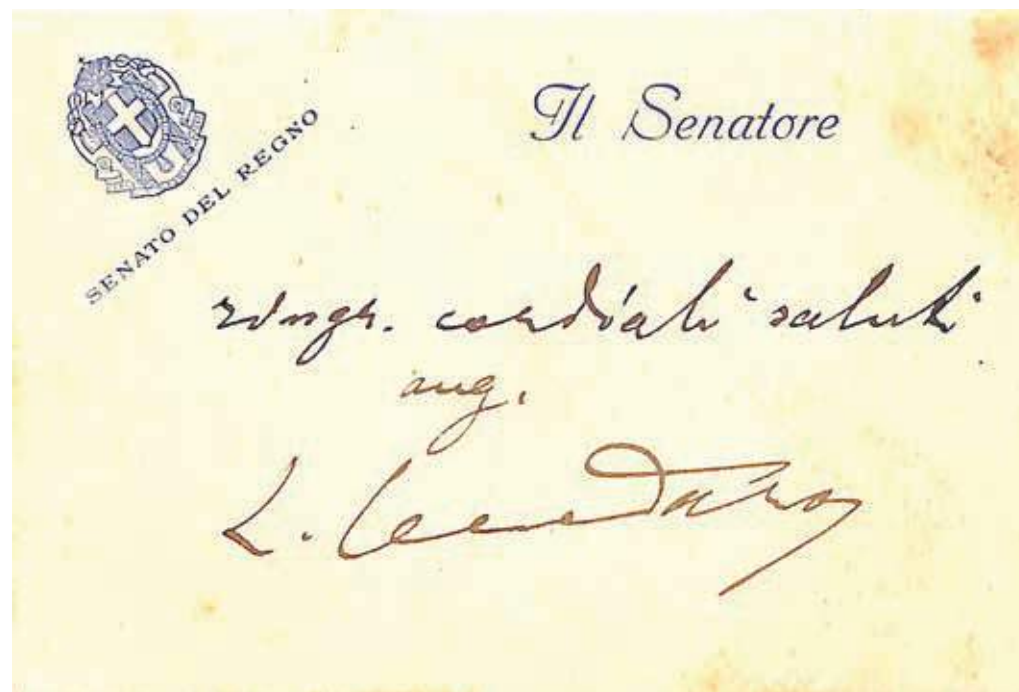 SENATO DEL REGNO
Il Senatore
ringr. cordiali saluti
aug.
L. Credaro